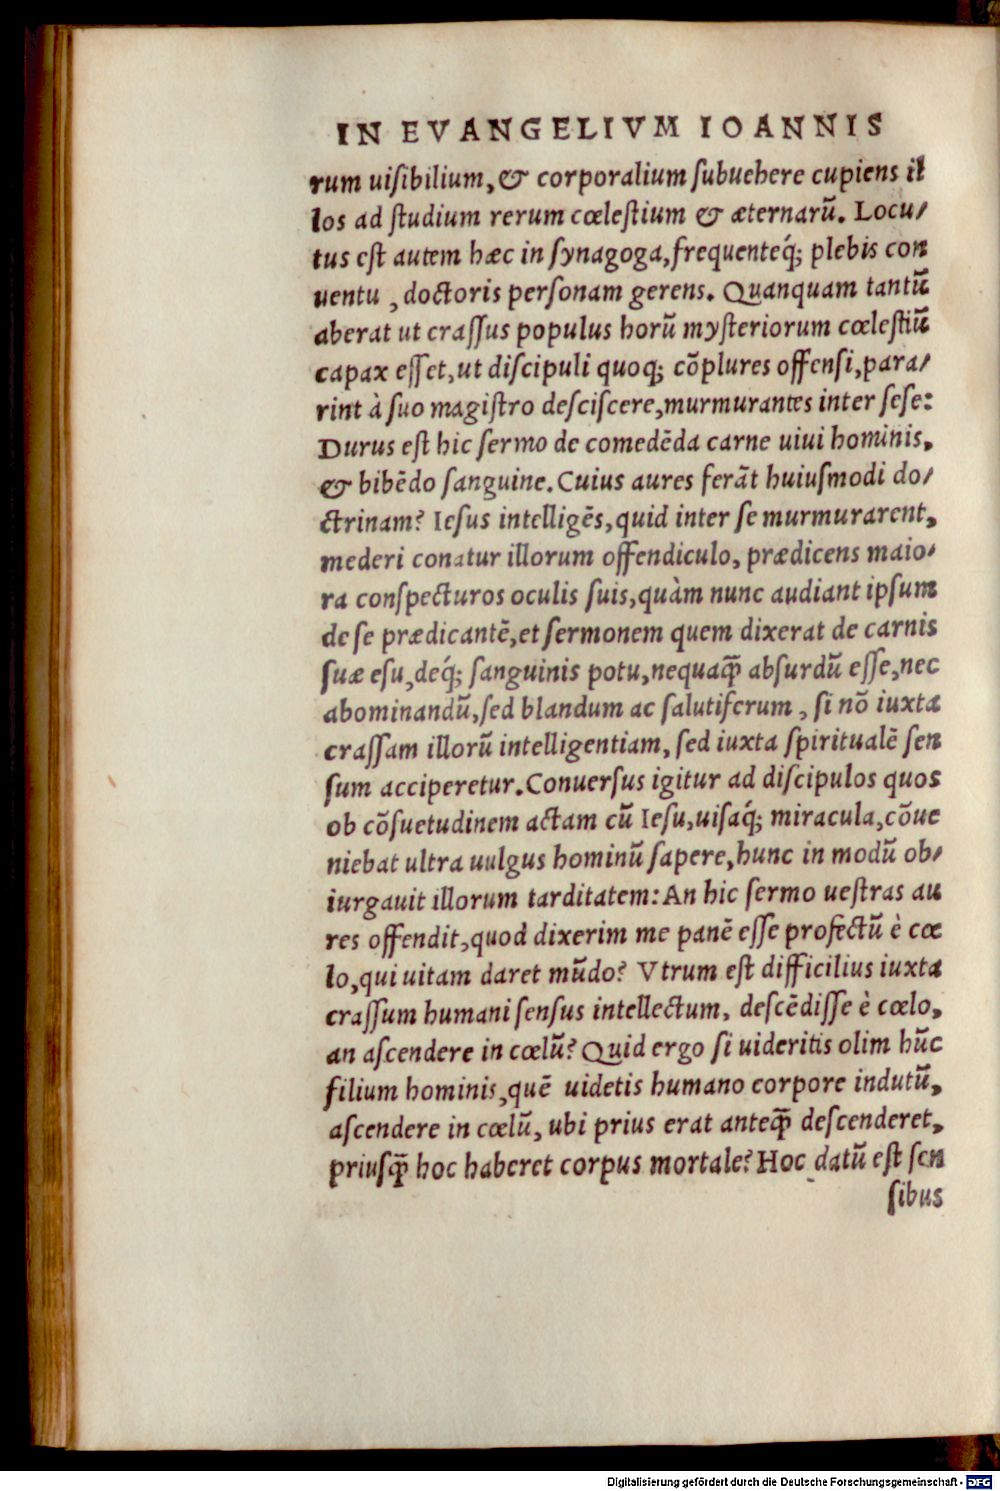 IN EVANGELIVM IOANNIS
rum uiſibilium, & corporalium ſubuehere cupiens il
los ad ſtudium rerum cœleſtium & æternarū. Locu/
tus eſt autem hæc in ſynagoga, frequenteq́; plebis con
uentu, doctoris perſonam gerens. Quanquam tantū
aberat ut craſſus populus horū myſteriorum cœleſtiū
capax eſſet, ut diſcipuli quoq; cōplures offenſi, para/
rint à ſuo magiſtro deſciſcere, murmurantes inter ſeſe:
Durus eſt hic ſermo de comedēda carne uiui hominis,
& bibēdo ſanguine. Cuius aures ferāt huiuſmodi do/
ctrinam? Ieſus intelligēs, quid inter ſe murmurarent,
mederi conatur illorum offendiculo, prædicens maio/
ra conſpecturos oculis ſuis, quàm nunc audiant ipſum
de ſe prædicantē, et ſermonem quem dixerat de carnis
ſuæ eſu, deq́; ſanguinis potu, nequaq̄ abſurdū eſſe, nec
abominandū, ſed blandum ac ſalutiferum, ſi nō iuxta
craſſam illorū intelligentiam, ſed iuxta ſpiritualē ſen
ſum acciperetur. Conuerſus igitur ad diſcipulos quos
ob cōſuetudinem actam cū Ieſu, uiſaq́; miracula, cōue
niebat ultra uulgus hominū ſapere, hunc in modū ob/
iurgauit illorum tarditatem: An hic ſermo ueſtras au
res offendit, quod dixerim me panē eſſe profectū è cœ
lo, qui uitam daret mūdo? Vtrum eſt difficilius iuxta
craſſum humani ſenſus intellectum, deſcēdiſſe è cœlo,
an aſcendere in cœlū? Quid ergo ſi uideritis olim hūc
filium hominis, quē uidetis humano corpore indutū,
aſcendere in cœlū, ubi prius erat anteq̄ deſcenderet,
priuſq̄ hoc haberet corpus mortale? Hoc datū eſt ſen
ſibus
Digitalisierung gefördert durch die Deutsche Forschungsgemeinschaft - DFG